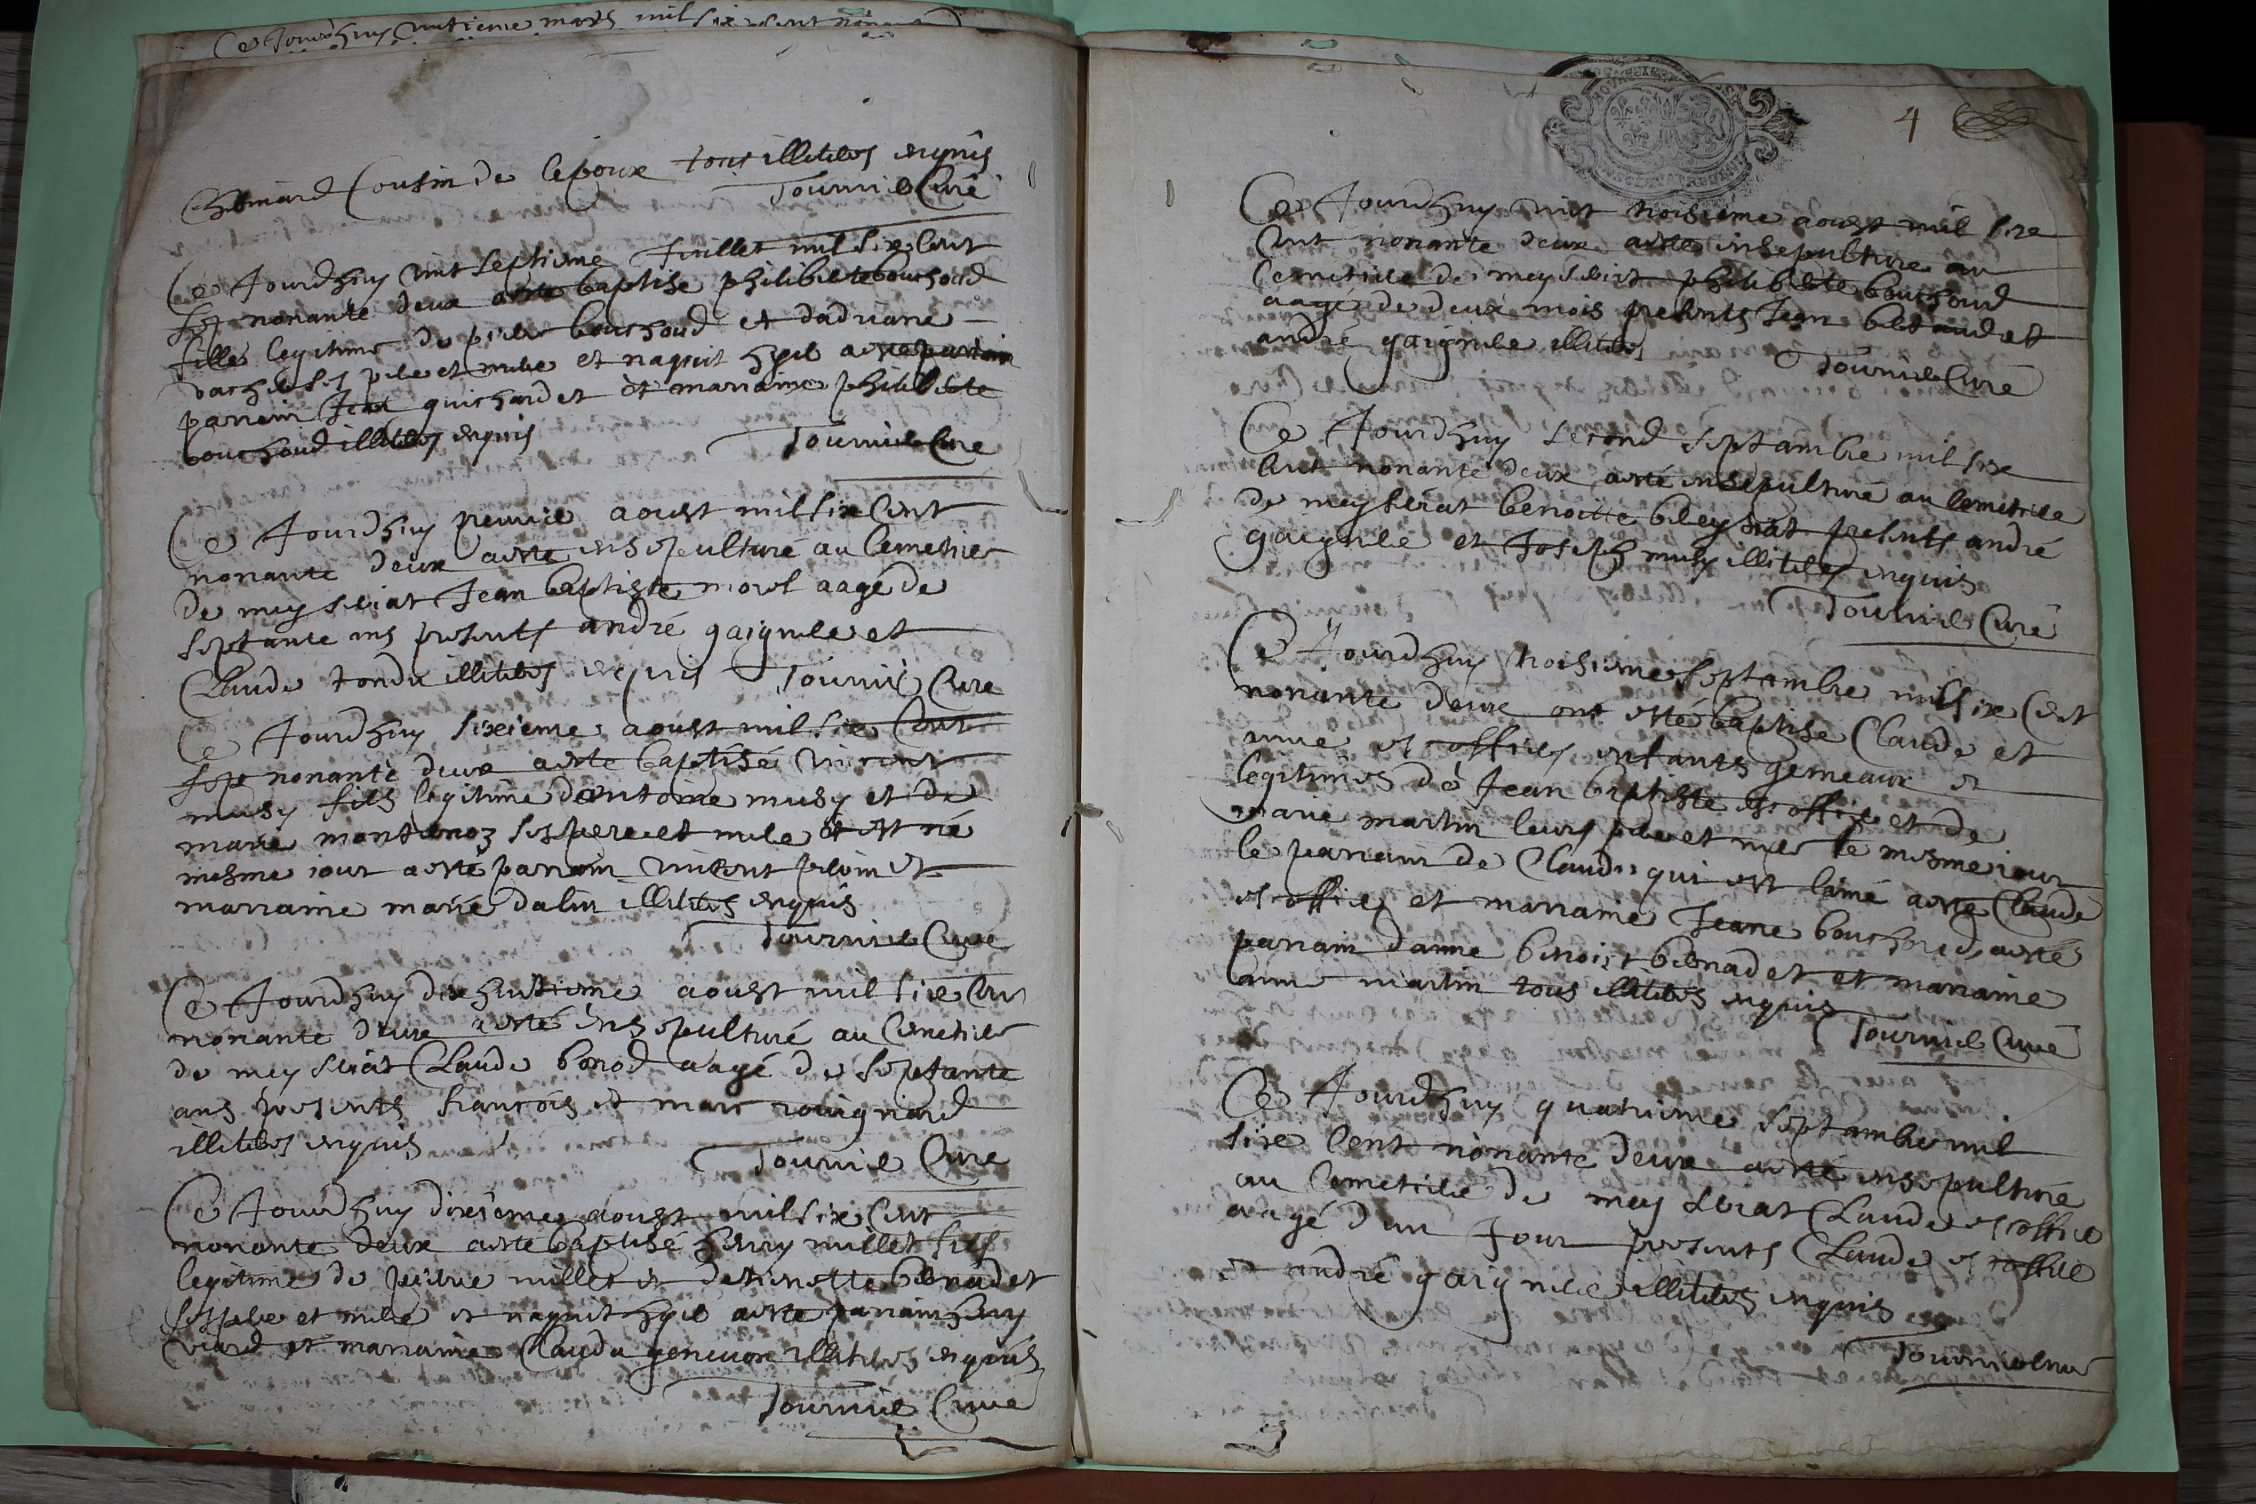 Ce Jourdhuy
mars mil six cent nonante
Chomard Cousin de lepoux tous illiteres enquis
Tournier Curé
Ce Jourdhuy vint septieme Juillet mil six Cent
nonante deux a esté baptisé philiberte bouchard
fille legitime de pierre bouchard et dadriane
ses pere et mere et naquit hyer a esté
parrain Jean guichardet et marraine philiberte
bouchard illiteres enquis Tournier Curé
Ce Jourdhuy premier aoust mil six Cent
nonante deux a esté ensepulturé au Cemetiere
de meyseriat Jean baptiste morel aagé de
septante ans presents andré gaignele et
Claude tondu illiteres enquis Tournier Curé
Ce Jourdhuy sixieme aoust mil six Cent
nonante deux a esté baptisé vincent
musy fils legitime dantoine musy et de
marie ses pere et mere et est né
mesme jour a esté parrain vincent et
marraine marie illiteres enquis
Tournier Curé
Ce Jourdhuy dixhuitieme aoust mil six Cent
nonante deux a esté ensepulturé au Cemetiere
de meyseriat Claude borod aagé de septante
ans presents francois et marc
illiteres enquis
Tournier Curé
Ce Jourdhuy dixieme aoust mil six Cent
nonante deux a esté baptisé henry millet fils
legitime de pierre millet et bernadet
ses pere et mere et naquit hyer a esté parrain henry
et marraine Clauda illiteres enquis
Tournier Curé
4
Ce Jourdhuy vint troisieme aoust mil six
Cent nonante deux a esté ensepulturé au
Cemetiere de meyseriat philiberte bouchard
aagé de deux mois presents Jean et
andré gaignele illiteres
Tournier Curé
Ce Jourdhuy second septambre mil six
Cent nonante deux a esté ensepulturé au Cemetiere
de meyseriat benoitte presents andré
gaignele et Joseph musy illiteres enquis
Tournier Curé
Ce Jourdhuy troisieme septambre mil six Cent
nonante deux ont esté baptisé Claude et
anne escoffier enfants gemeaux et
legitimes de Jean baptiste escoffier et de
marie martin leurs pere et mere le mesme jour
le parrain de Claude qui est lainé a esté Claude
escoffier et marraine Jeane bouchard a esté
parrain danne benoist bernadet et marraine
anne martin tous illiteres enquis
Tournier Curé
Ce Jourdhuy quatrieme septambre mil
six Cent nonante deux a esté ensepulturé
au Cemetiere de meyseriat Claude escoffier
aagé dun Jour presents Claude escoffier
et andré gaignele illiteres enquis
Tournier Curé